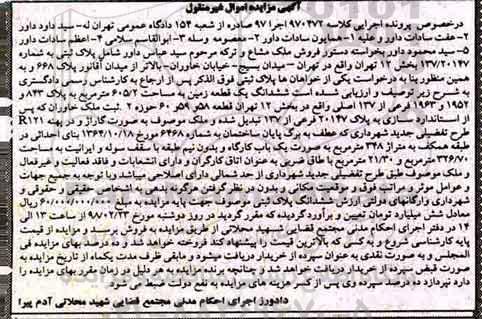 آگهی مزایده اموال غیرمنقول
درخصوص پرونده اجرایی کلاسه ۹۷۰۴۷۲ اجرا ۹۷ صادره از شعبه ۱۵۴ دادگاه عمومی تهران له- سید داود داور
۲- عفت سادات داور و علیه ۱- همایون سادات داور ۲- معصومه وسله ۳- ابوالقاسم سلامی ۴- اعظم سادات داور
۵- سید محمود داور بخواسته دستور فروش ملک مشاع و ترکه مرحوم سید عباس داور شامل پلاک ثبتی به شماره
۱۳۷/۲۰۱۴۷ بخش ۱۲ تهران واقع در تهران – میدان بسیج- خیابان خاوران- بالاتر از میدان آقانور پلاک ۶۶۸ و به
همین منظور بنا به درخواست یکی از خواهان ها پلاک ثبتی فوق الذکر پس از ارجاع به کارشناس رسمی دادگستری
به شرح زیر توصیف و ارزیابی شده است ششدانگ یک قطعه زمین به مساحت ۶۰۵/۲ مترمربع به پلاک ۸۴۳ و
۱۹۵۲ و ۱۹۶۳ فرعی از ۱۳۷ اصلی واقع در بخش ۱۲ تهران قطعه ۵۸و ۵۹و ۶۰ حوزه ۲. ثبت ملک خاوران که پس
از استاندارد سازی به پلاک ۲۰۱۴۷ فرعی از ۱۳۷ تبدیل شده و ملک موصوف به صورت گاراژ و در پهنه R۱۲۱
طرح تفصیلی جدید شهرداری که عطف به برگ پایان ساختمان به شماره ۶۴۶۸ مورخ ۱۳۶۴/۱۰/۱۸ بنای احداثی در
طبقه همکف به متراژ ۳۴۸ مترمربع به صورت یک باب کارگاه و بدون نیم طبقه با سقف سوله و ایرانیت به مساحت
۳۲۶/۷۰ مترمربع و ۲۱/۳۰ مترمربع با طاق ضربی به عنوان اتاق کارگران و دارای انشعابات و فاقد فعالیت و غیرفعال
و ملک موصوف طبق طرح تفصیلی جدید شهرداری از حد شمالی دارای اصلاحی میباشد وبا توجه به جمیع جهات
و عوامل موثر و مراتب فوق و موقعیت مکانی و بدون در نظر گرفتن هرگونه بدهی به اشخاص حقیقی و حقوقی و
شهرداری وارگانهای دولتی ارزش ششدانگ پلاک ثبتی موصوف جهت پایه مزایده به مبلغ ۶۰/۰۰۰/۰۰۰/۰۰۰ ریال
معادل شش میلیارد تومان تعیین و برآورد گردیده که مقرر گردید در روز دوشنبه مورخ ۹۸/۰۲/۲۳ از ساعت ۱۳ الی
۱۴ در دفتر اجرای احکام مدنی مجتمع قضایی شهید محلاتی از طریق مزایده به فروش برسد و مزایده از قیمت
پایه کارشناسی شروع و به کسی که بالاترین قیمت را پیشنهاد کند فروخته خواهد شد و ده درصد بهای مزایده فی
المجلس و به صورت نقدی به عنوان سپرده از خریدار دریافت میشود و مابقی ظرف مدت یکماه از تاریخ مزایده به
صورت قبض سپرده از خریدار دریافت خواهد شد و چنانچه برنده مزایده به هر دلیل در زمان مقرر بهای مزایده را
دارد نپردازد ده درصد سپرده وی پس از کسر هزینه های مزایده به نفع دولت ضبط می شود
دادورز اجرای احکام مدنی مجتمع قضایی شهید محلاتی آدم پیرا